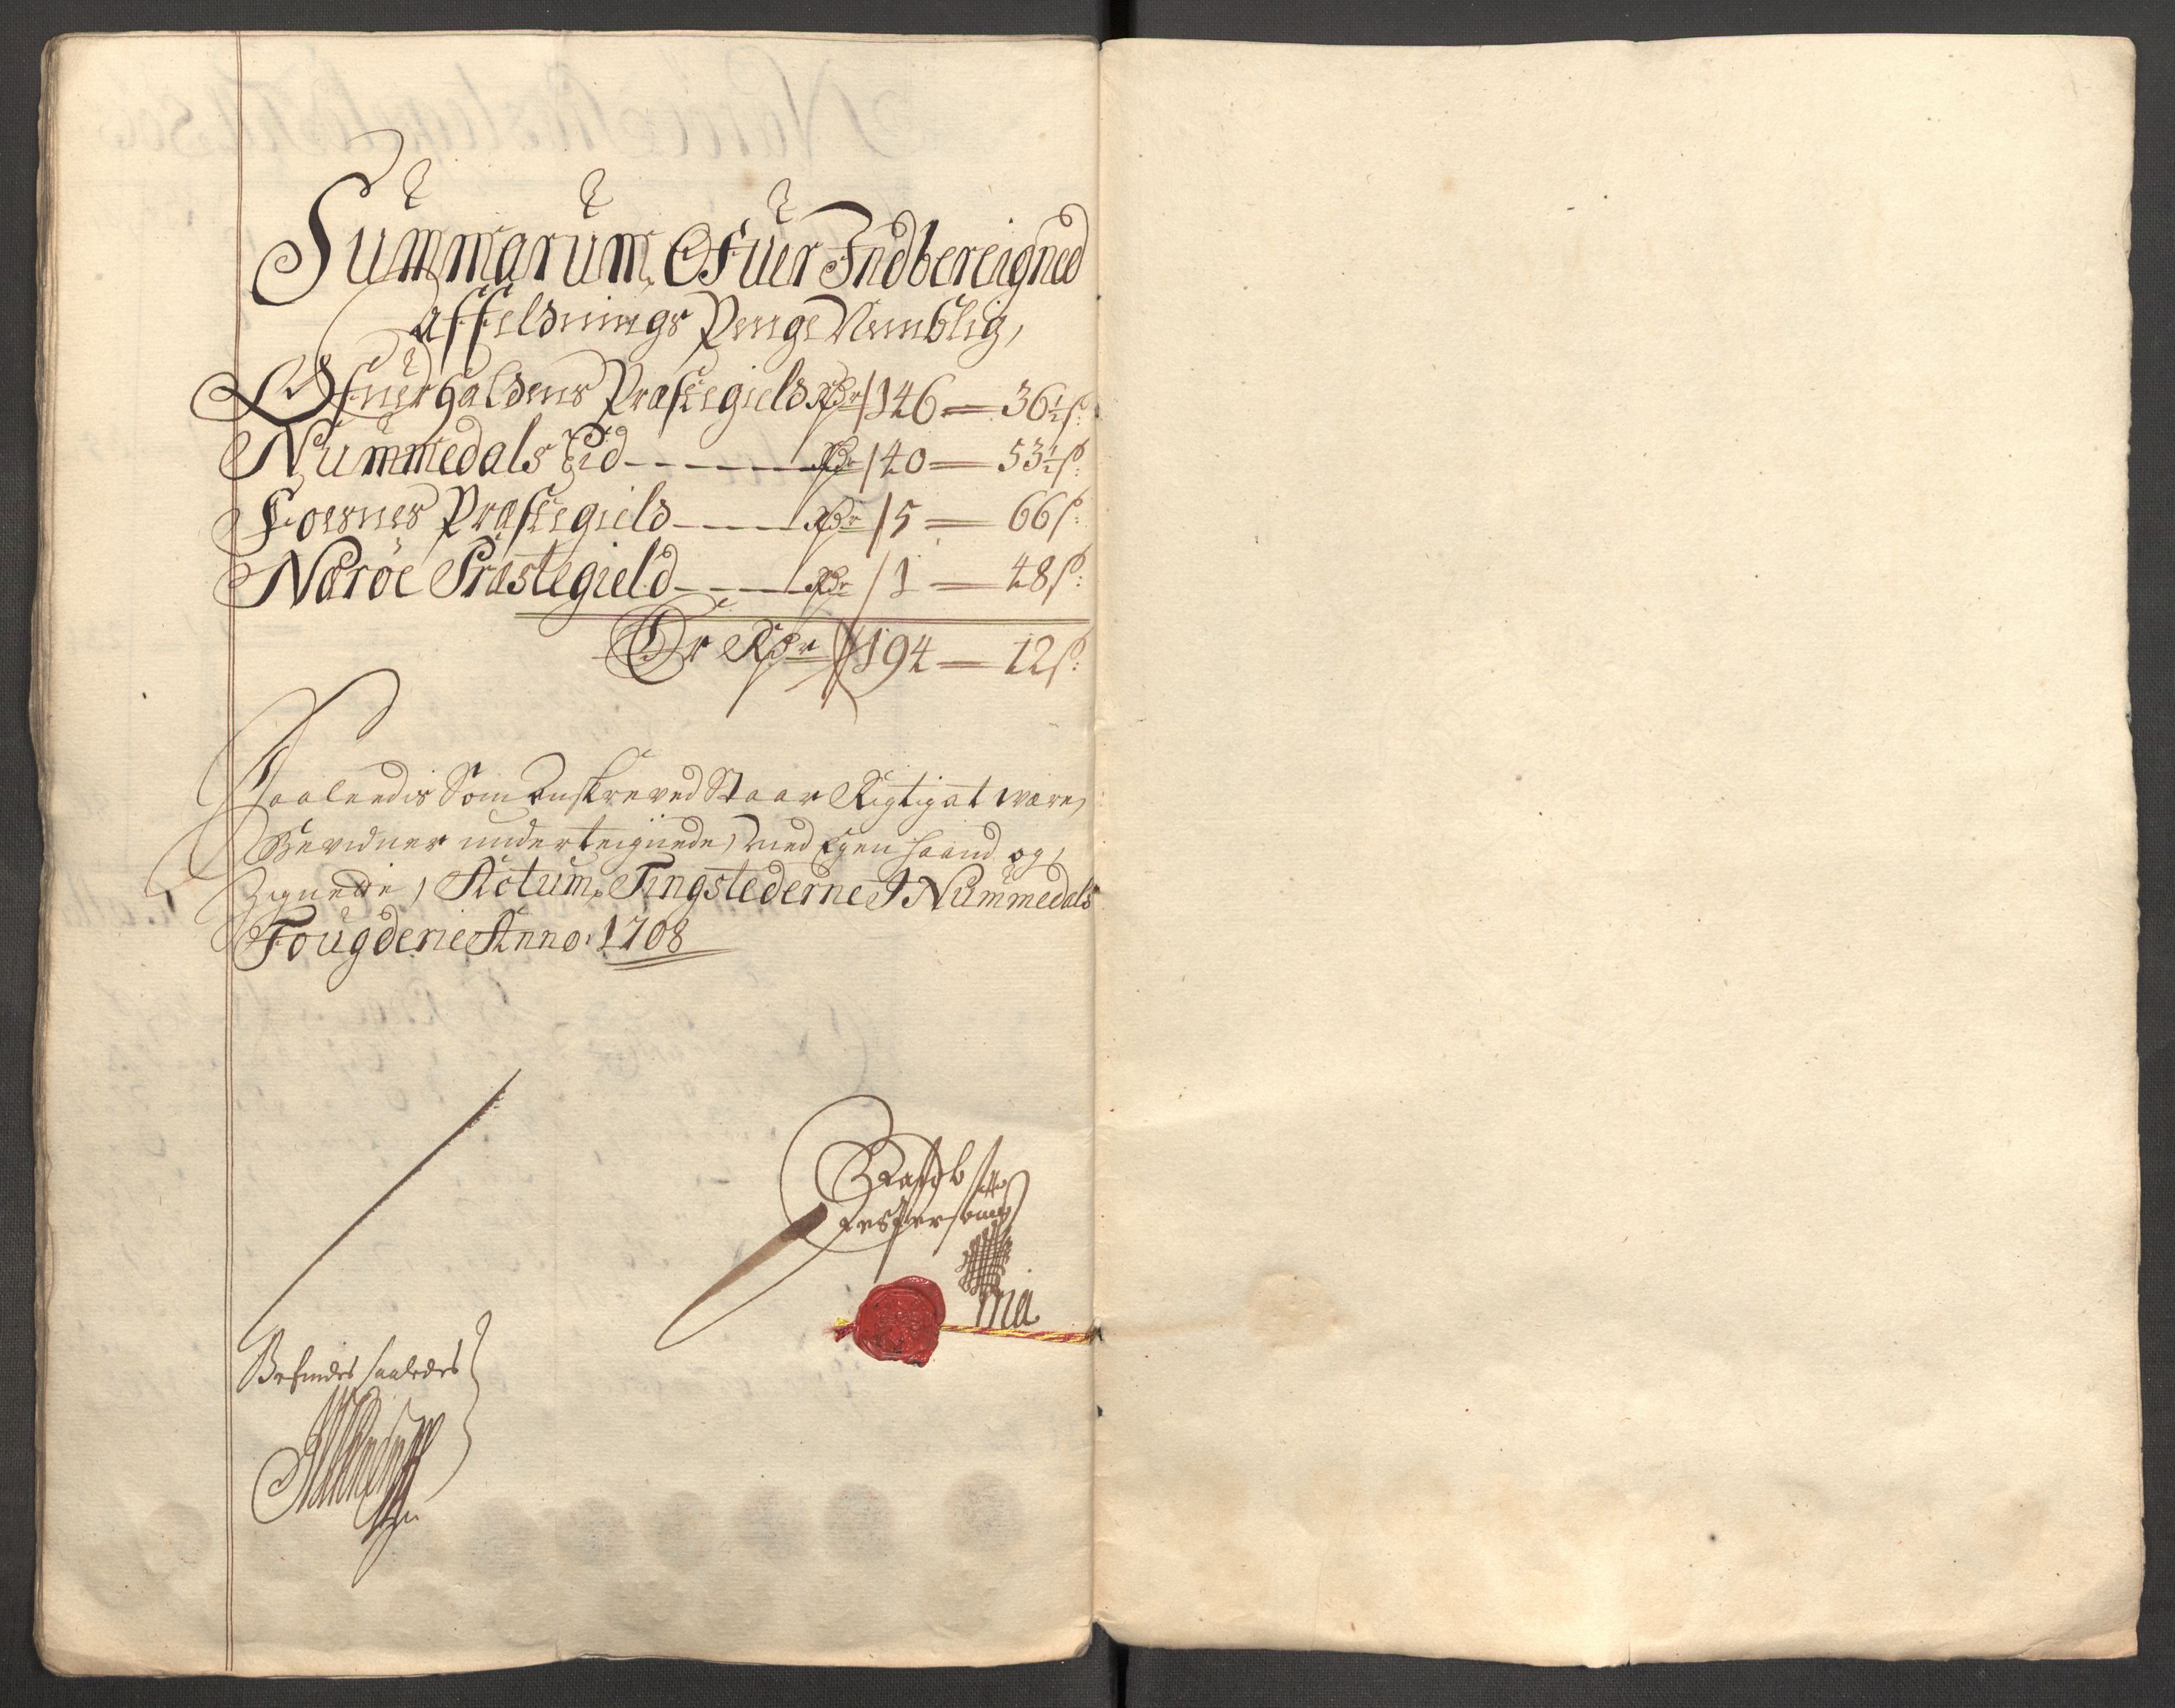 Summarum Ofuer Indbereigned
Affeldnings Penge Nemblig,
Ofuerhaldens Præstegield Rdr 146 — 36½ s:
Nummedals Eid — — — — Rdr 40 — 53½ s:
Foesnes Præstegield — — — Rdr 5 — 66 s:
Nærøe Præstegield — — — Rdr 1 — 48 s:
Er Rdr 194 — 12 s:
Saaleedis Som Anskreved Staar Rigtig at were,
Bevidner underteignede, med Egen haand og,
Zignette, Actum Tingstederne I Nummedals
Fougderie Anno 1708
Jespersen
mia
Befindes saaledes